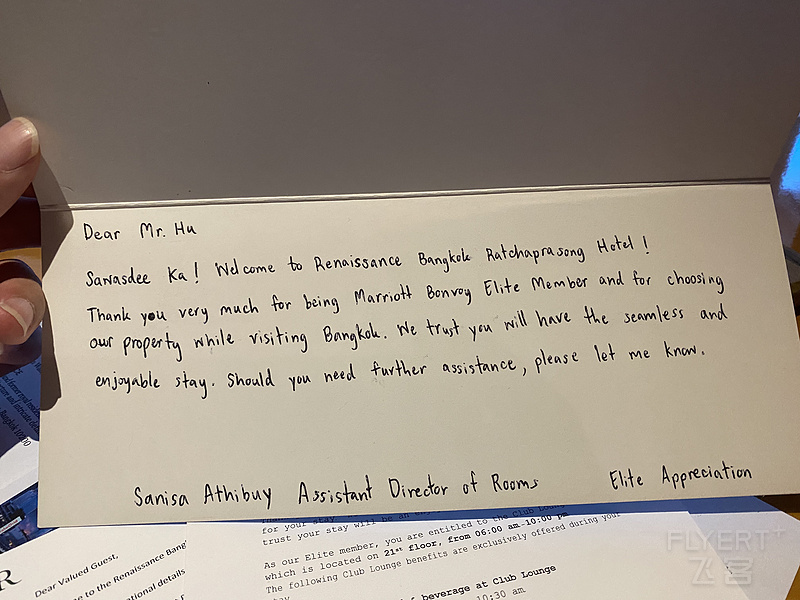 Dear Mr. Hu
Sawasdee Ka! Welcome to Renaissance Bangkok Ratchaprasong Hotel!
Thank you very much for being Marriott Bonvoy Elite Member and for choosing
our property while visiting Bangkok. We trust you will have the seamless and
enjoyable stay. Should you need further assistance, please let me know.
Sanisa Athibuy Assistant Director of Rooms Elite Appreciation
for your stay
trust your stay will be an
As our Elite member, you are entitled to the Club Lounge
which is located on 21st floor, from 06:00 am-10:00 pm
The following Club Lounge benefits are exclusively offered during your
stay
beverage at Club Lounge
10:30 am.
R
Dear Valued Guest,
to the Renaissance Bang
ational details
Bangkok
FLYERT
飞客